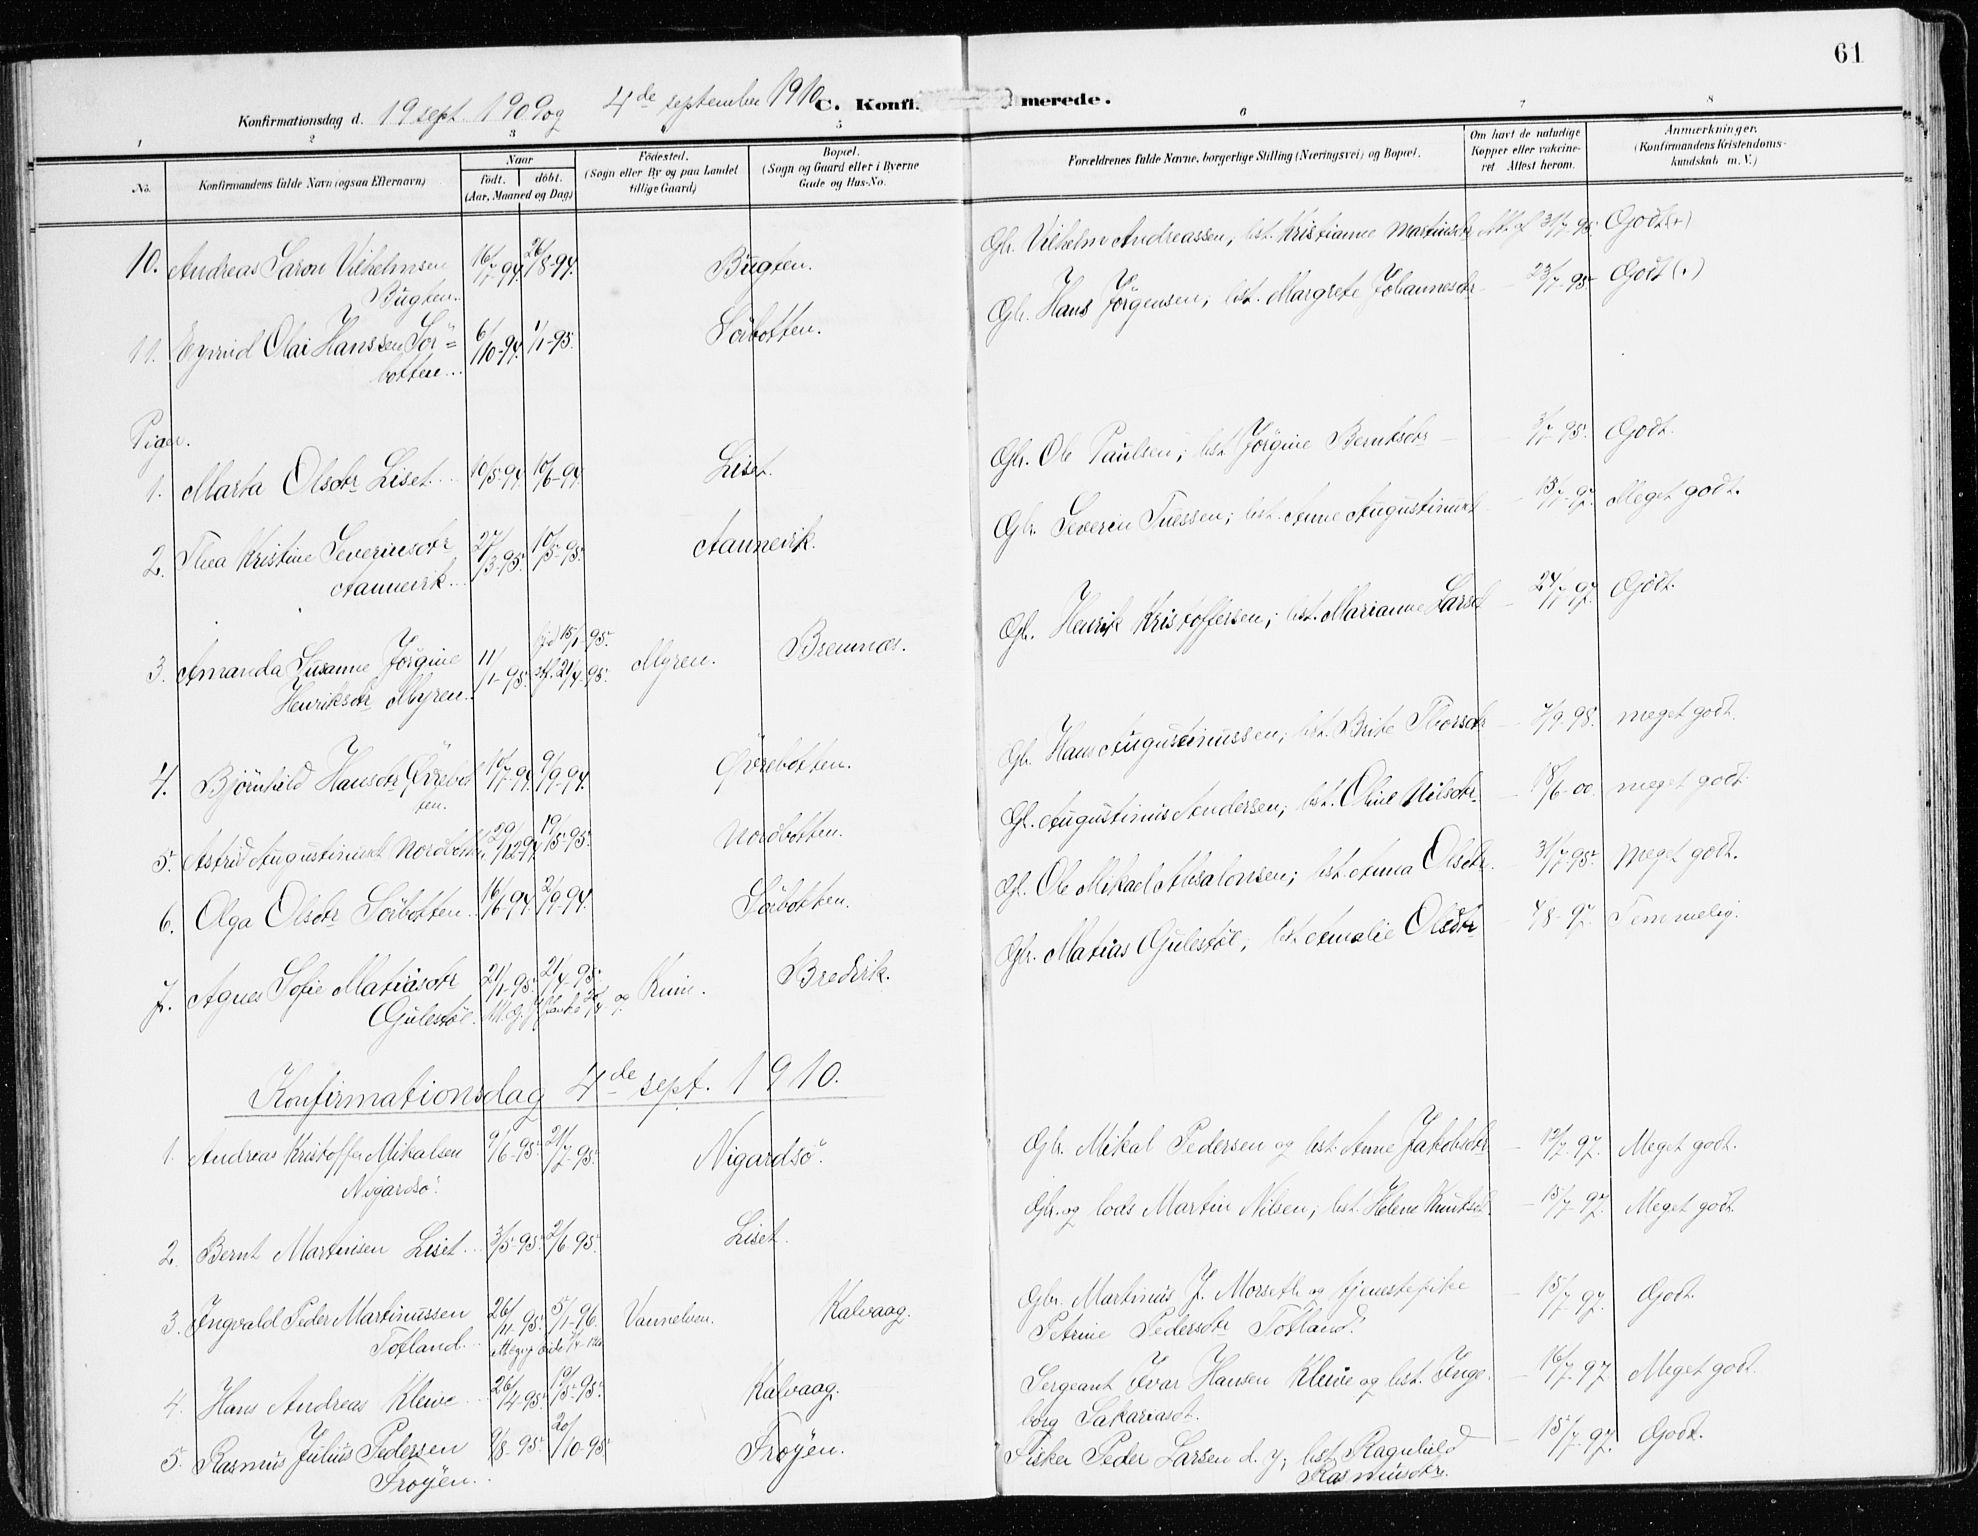 61
Konfirmationsdag d. 19 sept. 1909 og 4de september 1910
C. Konfi merede.
1 2 3 5 6 7 8
No. Konfirmandens fulde Navn (ogsaa Efternavn) Naar født. døbt. (Aar, Maaned og Dag) Fødested. (Sogn eller By og paa Landet tillige Gaard) Bopæl. (Sogn og Gaard eller i Byerne Gade og Hus-No. Forældrenes fulde Navne, borgerlige Stilling (Næringsvei) og Bopæl. Om havt de naturlige Kopper eller vakcineret Attest herom. Anmærkninger. (Konfirmandens Kristendomskundskab m. V.)
10. Andreas Saron Vilhelmsen 16/7-94. 26/8-94. Bugten. Gbr. Vilhelm Andreassen; hst. Kristianne Martinsdtr 31/7-95. Godt (+)
Bugten.
11. Eyvind Olai Hanssen Sör= 6/10-94. 1/1-95. Sörbotten. Gbr. Hans Jörgensen; hst. Margrete Johannesdtr - 23/7-95 Godt (+)
botten...
Piger.
1. Marta Olsdtr Liset... 10/5-94. 10/6-94. Liset. Gbr. Ole Paulsen; hst. Jörgine Berntsdtr - 3/7-95. Godt.
2. Thea Kristine Severinsdtr 27/3-95. 10/5-95. Aannevik. Gbr. Severin Tuessen; hst. Anne Augustinusd - 15/7-97. Meget godt.
Aannevik...
3. Amanda Susanne Jørgine 11/1-95. hjd 15/1-95. stf. 21/4-95. Myren. Bremnes. Gbr. Henrik Kristoffersen; hst. Marianne Larsd - 24/7-97. Godt.
Henriksdtr Myren...
4. Bjørnhild Hansdtr Øvrebot 10/7-94. 9/9-94. Øvrebotten. Gbr. Hans Augustinussen; hst. Brite Thorsdtr - 7/9-98. meget godt.
ten.
5. Astrid Augustinusd Nordbotten 29/12-94 19/5-95. Nordbotten. Gbr. Augustinus Andersen; hst. Oline Nilsdtr. - 18/6-00. meget godt
6. Olga Olsdtr Sörbotten. 16/6-94. 2/9-94. Sörbotten. Gbr. Ole Mikael Absalonsen; hst. Anna Olsdtr. - 31/7-95 Meget godt.
7. Agnes Sofie Matiasdtr 21/1-95. 21/4-95. Kinn. Bredvik. Gbr. Matias Gulestöl; hst. Amalie Olsdtr - 4/8-97. Temmelig.
Gulestöl.
Konfirmationsdag 4de sept. 1910.
1. Andreas Kristoffer Mikalsen 9/6-95. 21/7-95. Nigardsö. Gbr. Mikal Pedersen og hst. Anne Jakobsdtr - 12/7-97. Meget godt.
Nigardsö.
2. Bernt Martinsen Liset... 3/5-95. 2/6-95. Liset. Gbr. og lods Martin Nilsen; hst. Helene Knutsd. - 15/7-97. Meget godt
3. Ingvald Peder Martinussen 26/11-95. 5/1-96. Vannelven. Kalvaag. Gbr. Martinus J. Morseth og tjenestepike - 15/7-97. Godt.
Totland... Petrine Pedersdtr Totland.
4. Hans Andreas Kleive... 26/4-95. 19/5-95. Kalvaag. Sergeant Ivar Hansen Kleive og hst. Inge= - 16/7-97. Meget godt.
borg Sakariasd.
5. Rasmus Julius Pedersen 9/8-95. 20/10-95. Frøyen. Fisker Peder Larsen d. y; hst. Ragnhild - 15/7-97. Godt.
Frøyen... Rasmusdtr.